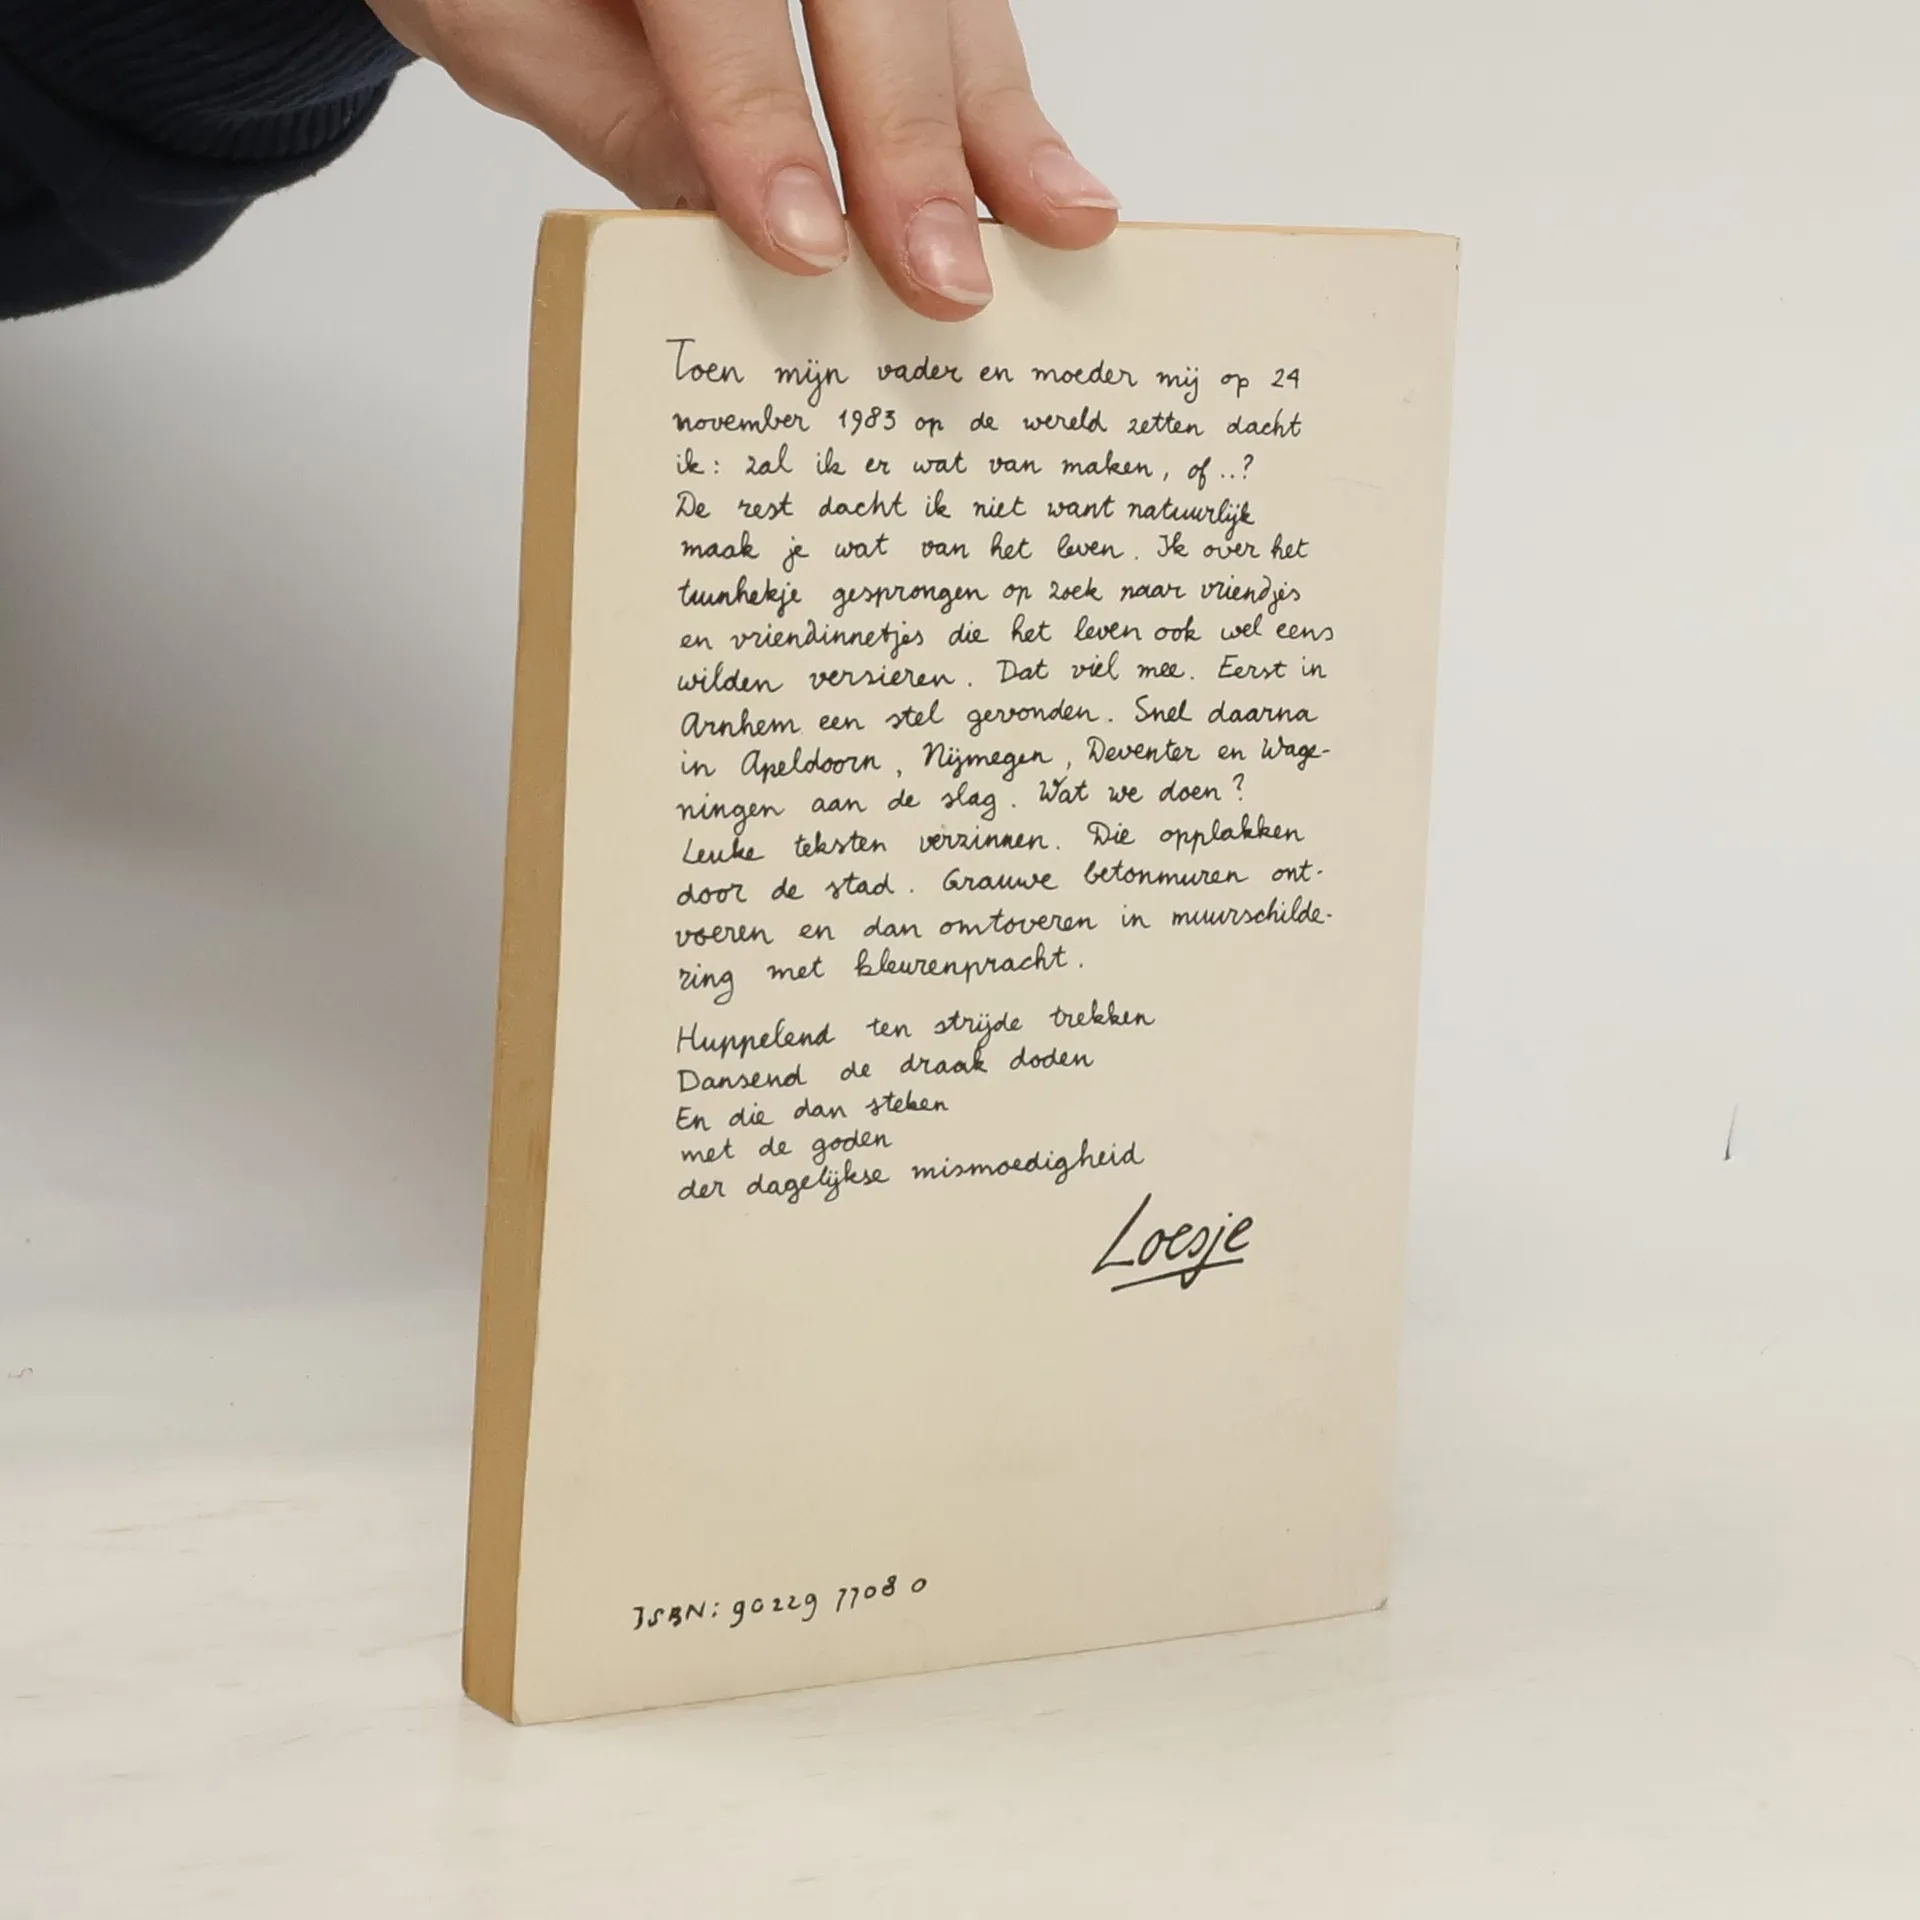 Toen mijn vader en moeder mij op 24
november 1983 op de wereld zetten dacht
ik: zal ik er wat van maken, of..?
De rest dacht ik niet want natuurlijk
maak je wat van het leven. Ik over het
tuinhekje gesprongen op zoek naar vriendjes
en vriendinnetjes die het leven ook wel eens
wilden versieren. Dat viel mee. Eerst in
Arnhem een stel gevonden. Snel daarna
in Apeldoorn, Nijmegen, Deventer en Wage-
ningen aan de slag. Wat we doen?
Leuke teksten verzinnen. Die opplakken
door de stad. Grauwe betonmuren ont-
voeren en dan omtoveren in muurschilde-
ring met kleurenpracht.
Huppelend ten strijde trekken
Dansend de draak doden
En die dan steken
met de goden
der dagelijkse mismoedigheid
Loesje
ISBN: 90229 7708 0